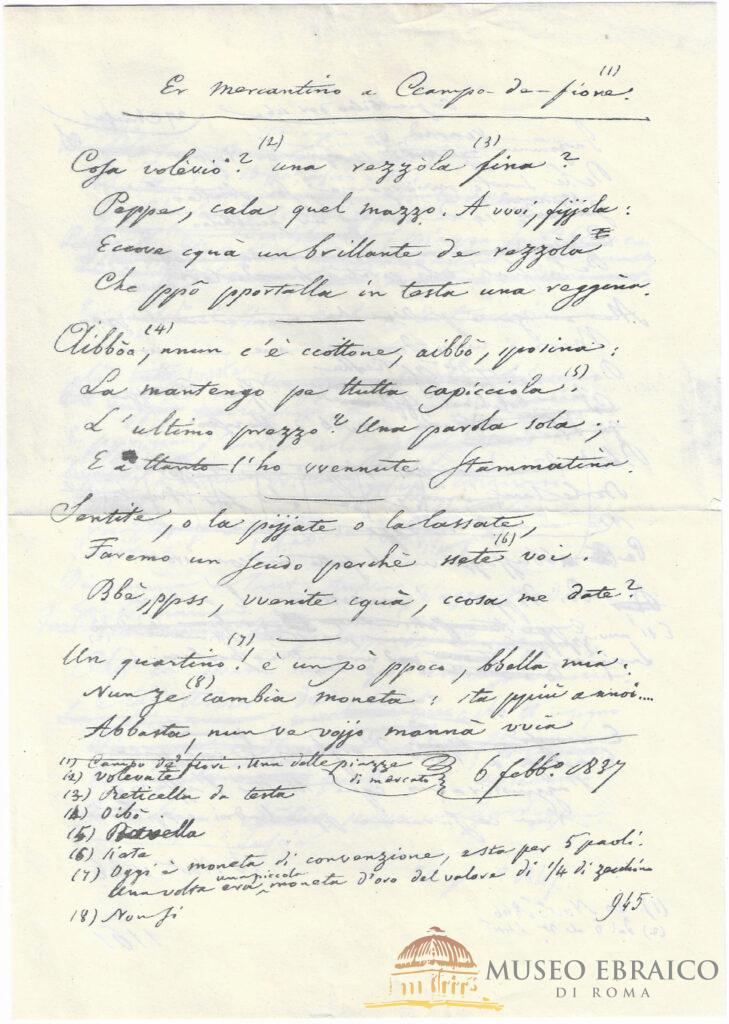 Er Mercantino a Ccampo-de-fiore. (1)
Cosa volévio? (2) una rezzòla (3) fina?
Peppe, cala quel mazzo. A vvoi, fijjola:
Eccove cquà un brillante de rezzòla
Che ppò pportalla in testa una reggina.
Aibbòo, (4) nnun c'è ccottone, aibbò, sposina:
La mantengo pe ttutta capicciola: (5)
L'ultimo prezzo? Una parola sola;
E a ttanto l'ho vvennute stammatina.
Sentite, o la pijjate o la lassate,
Faremo un scudo perchè ssete (6) voi.
Bbè, ppss, vvenite cquà, ccosa me date?
Un quartino! (7) è un pò ppoco, bbella mia:
Nun ze (8) cambia moneta: sta ppiù a nnoi....
Abbasta, nun ve vojjo mannà vvia
(1) Campo de' fiori. Una delle piazze di mercato
6 febb.o 1837
(2) Volevate
(3) Reticella da testa
(4) Oibò.
(5) Bavella
(6) siate
(7) Oggi è moneta di convenzione, e sta per 5 paoli.
Una volta era una piccola moneta d'oro del valore di 1/4 di zecchino
(8) Non si
945
MUSEO EBRAICO
DI ROMA